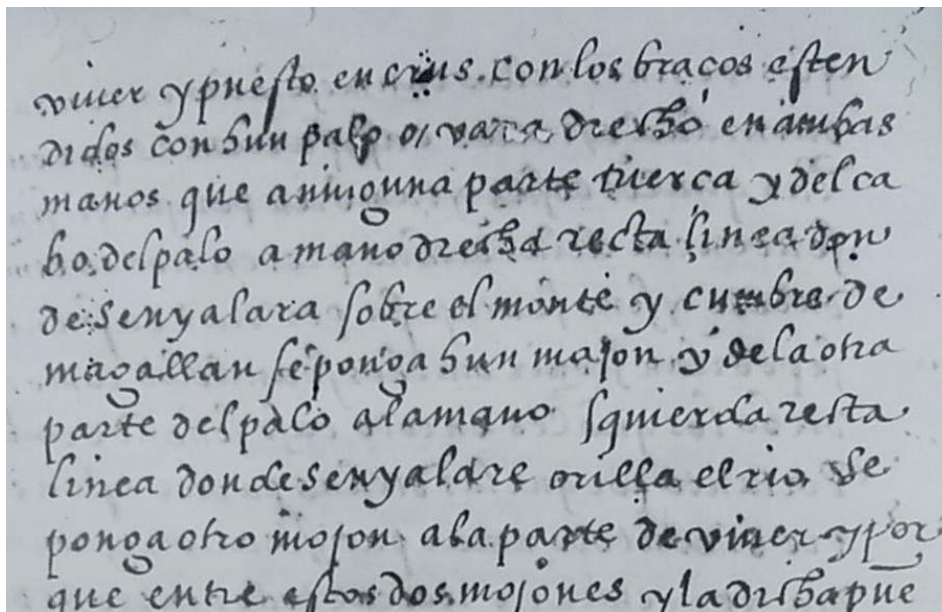 viver y puesto en crus. con los braços esten
didos con hun palo o, vara drecho en ambas
manos que a ninguna parte tuerca y del ca
bo del palo a mano drecha recta linea don
de senyalara sobre el monte y cumbre de
magallan se ponga hun mojon y de la otra
parte del palo a la mano squierda recta
linea donde senyalare orilla el rio se
ponga otro mojon a la parte de viver y por
que entre estos dos mojones y la dicha pue